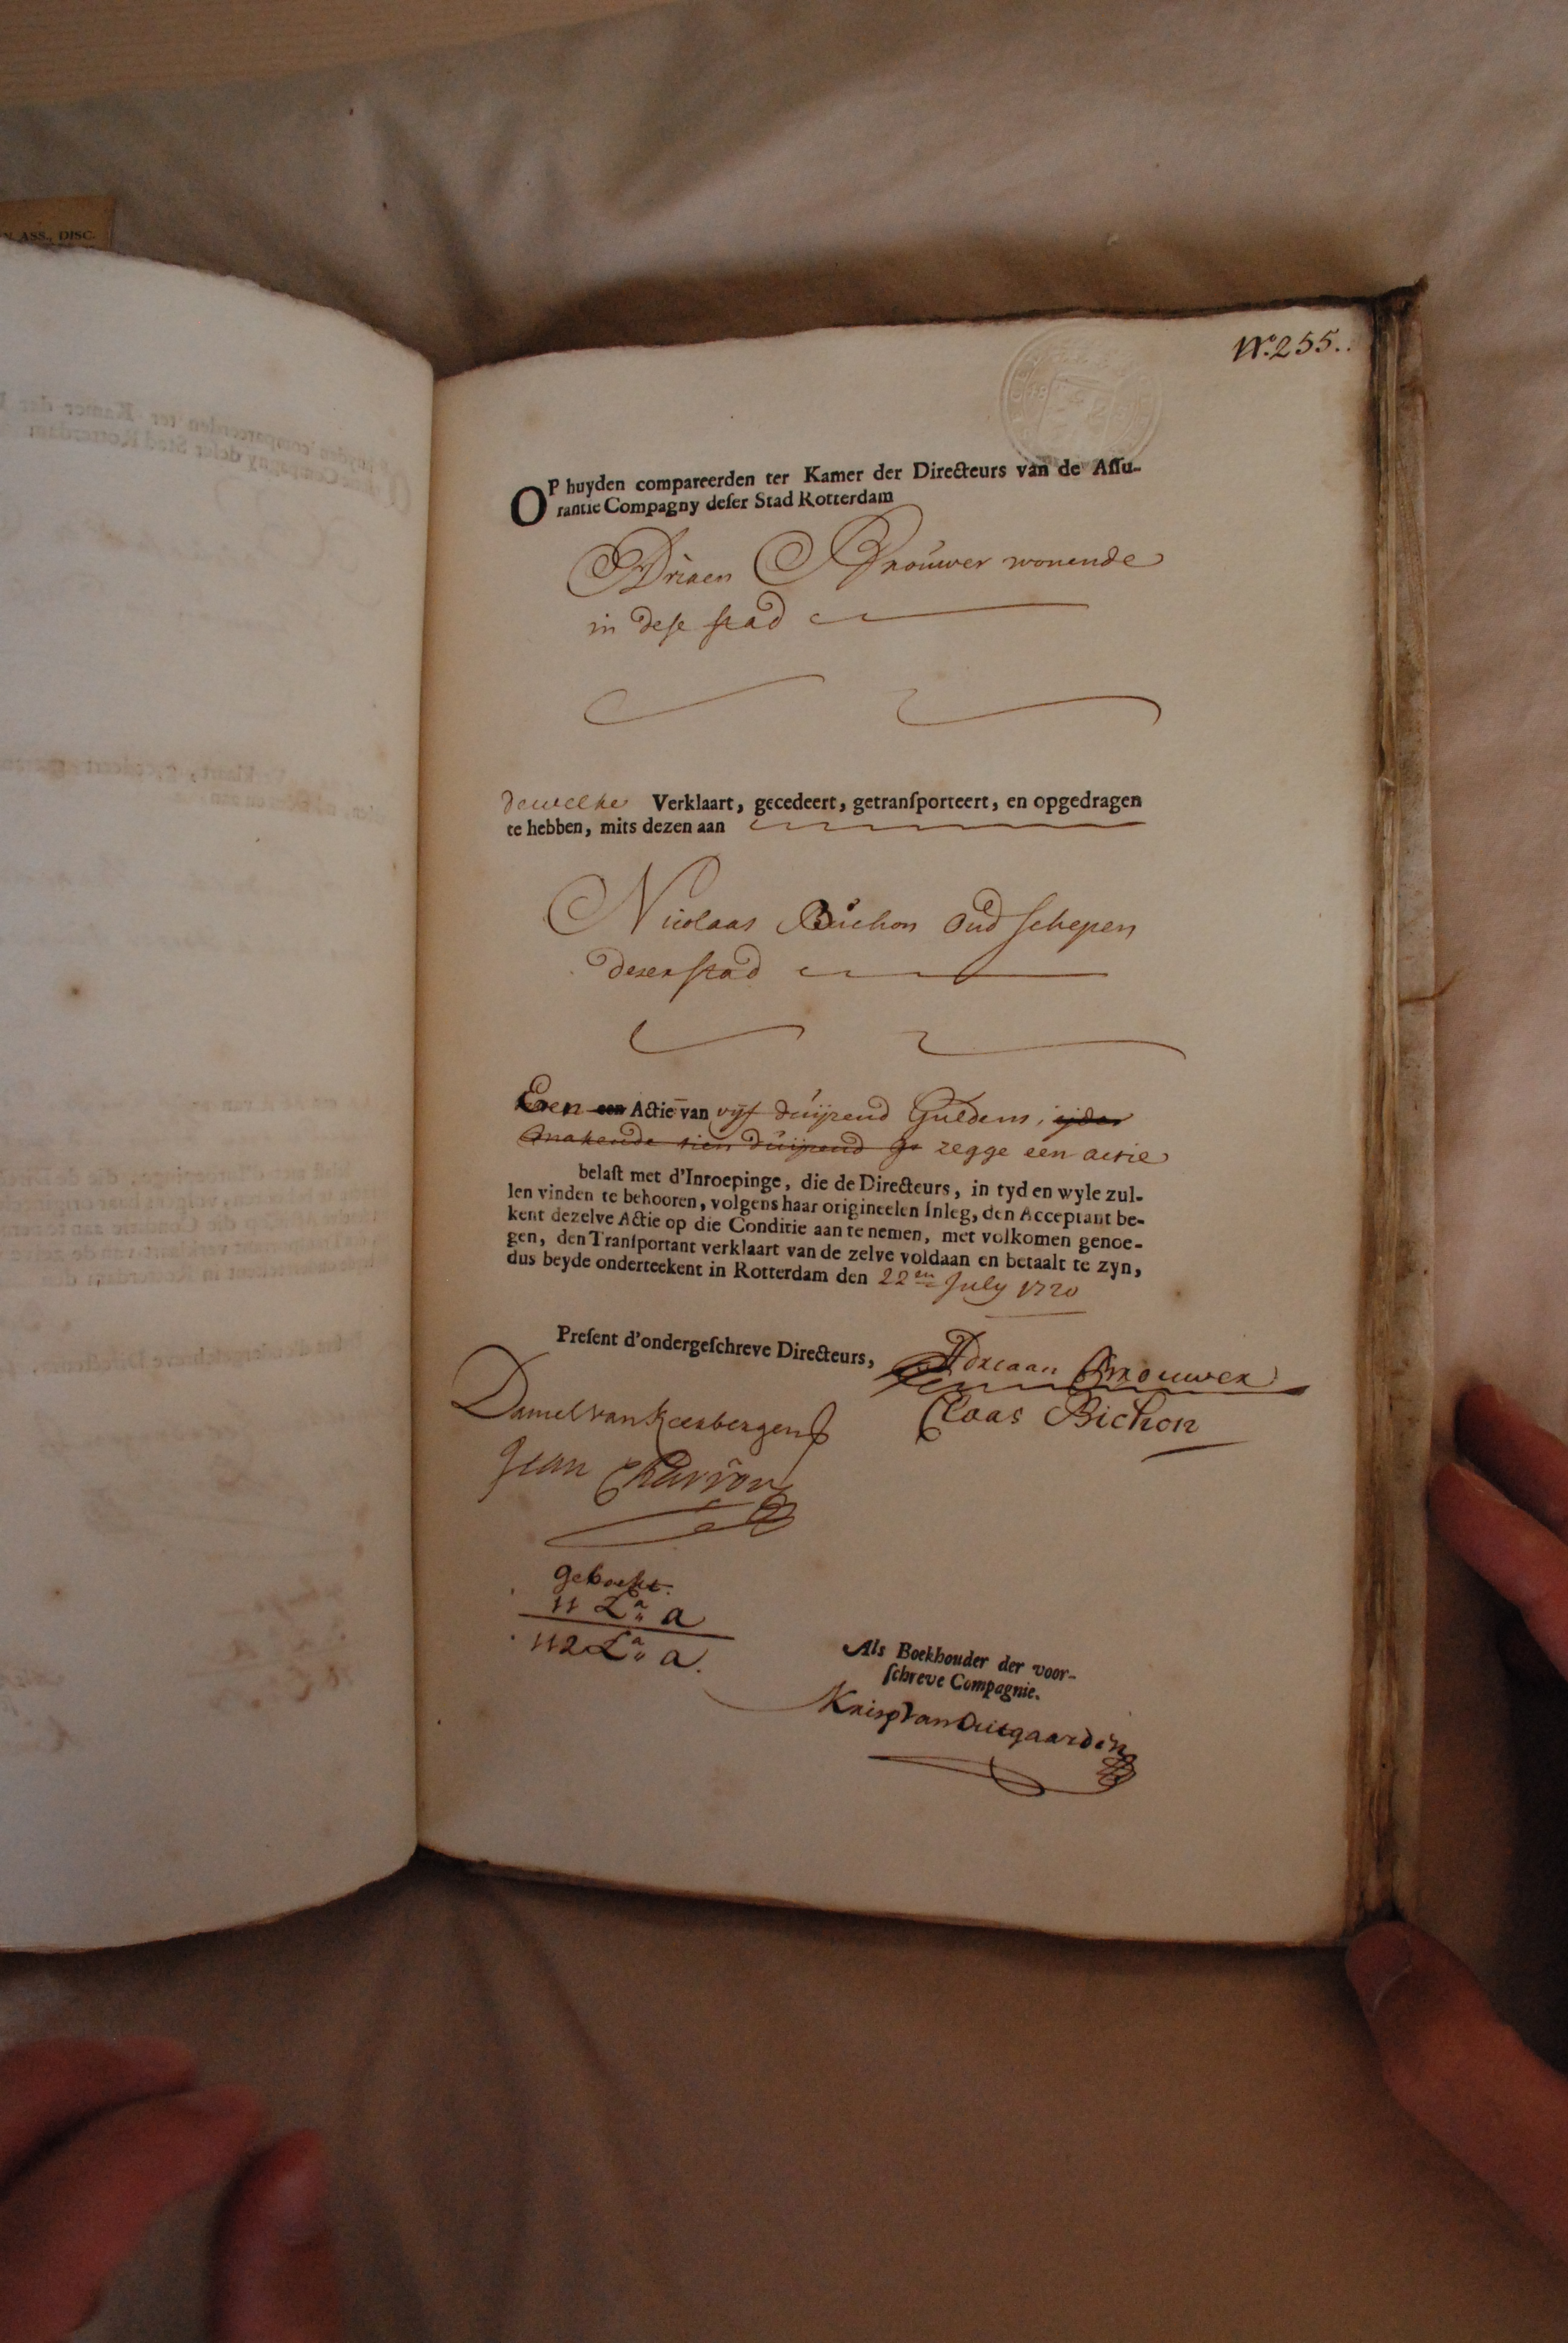 N ASS., DISC.
No. 255..
OP huyden compareerden ter Kamer der Directeurs van de Aſſu-
rantie Compagny deſer Stad Rotterdam
Adriaen Brouwer wonende
in deſe ſtad
dewelke Verklaart, gecedeert, getranſporteert, en opgedragen
te hebben, mits dezen aan
Nicolaas Bichon Oud ſchepen
dezer ſtad
Een een Actie van vijf duijzend Guldens, ijder
makende tien duijzend gs zegge een actie
belaſt met d'Inroepinge, die de Directeurs, in tyd en wyle zul-
len vinden te behooren, volgens haar origineelen Inleg, den Acceptant be-
kent dezelve Actie op die Conditie aan te nemen, met volkomen genoe-
gen, den Tranſportant verklaart van de zelve voldaan en betaalt te zyn,
dus beyde onderteekent in Rotterdam den 22en July 1720
Preſent d'ondergeſchreve Directeurs,
Adriaan Brouwer
Claas Bichon
Daniel van Keerbergen
Jean Charron
geboekt.
11 La a
112 La a.
Als Boekhouder der voor-
ſchreve Compagnie.
Krisp Van Outgaarden